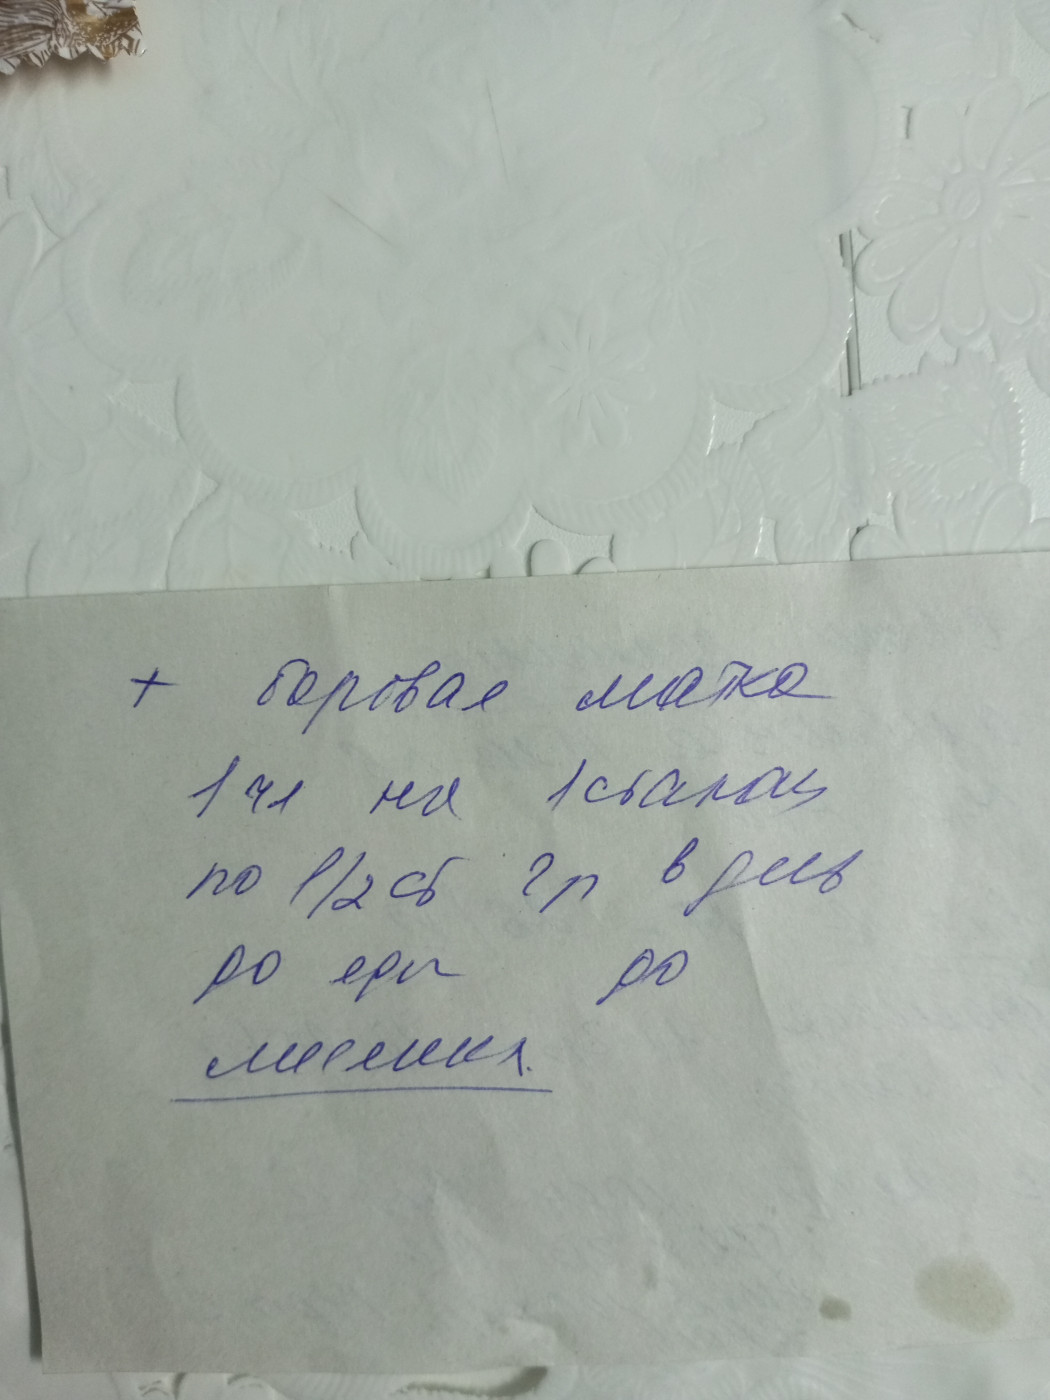 + боровая матка
1 чл на 1 стакан
по 1/2 ст 2р в день
до еды до
месяца.